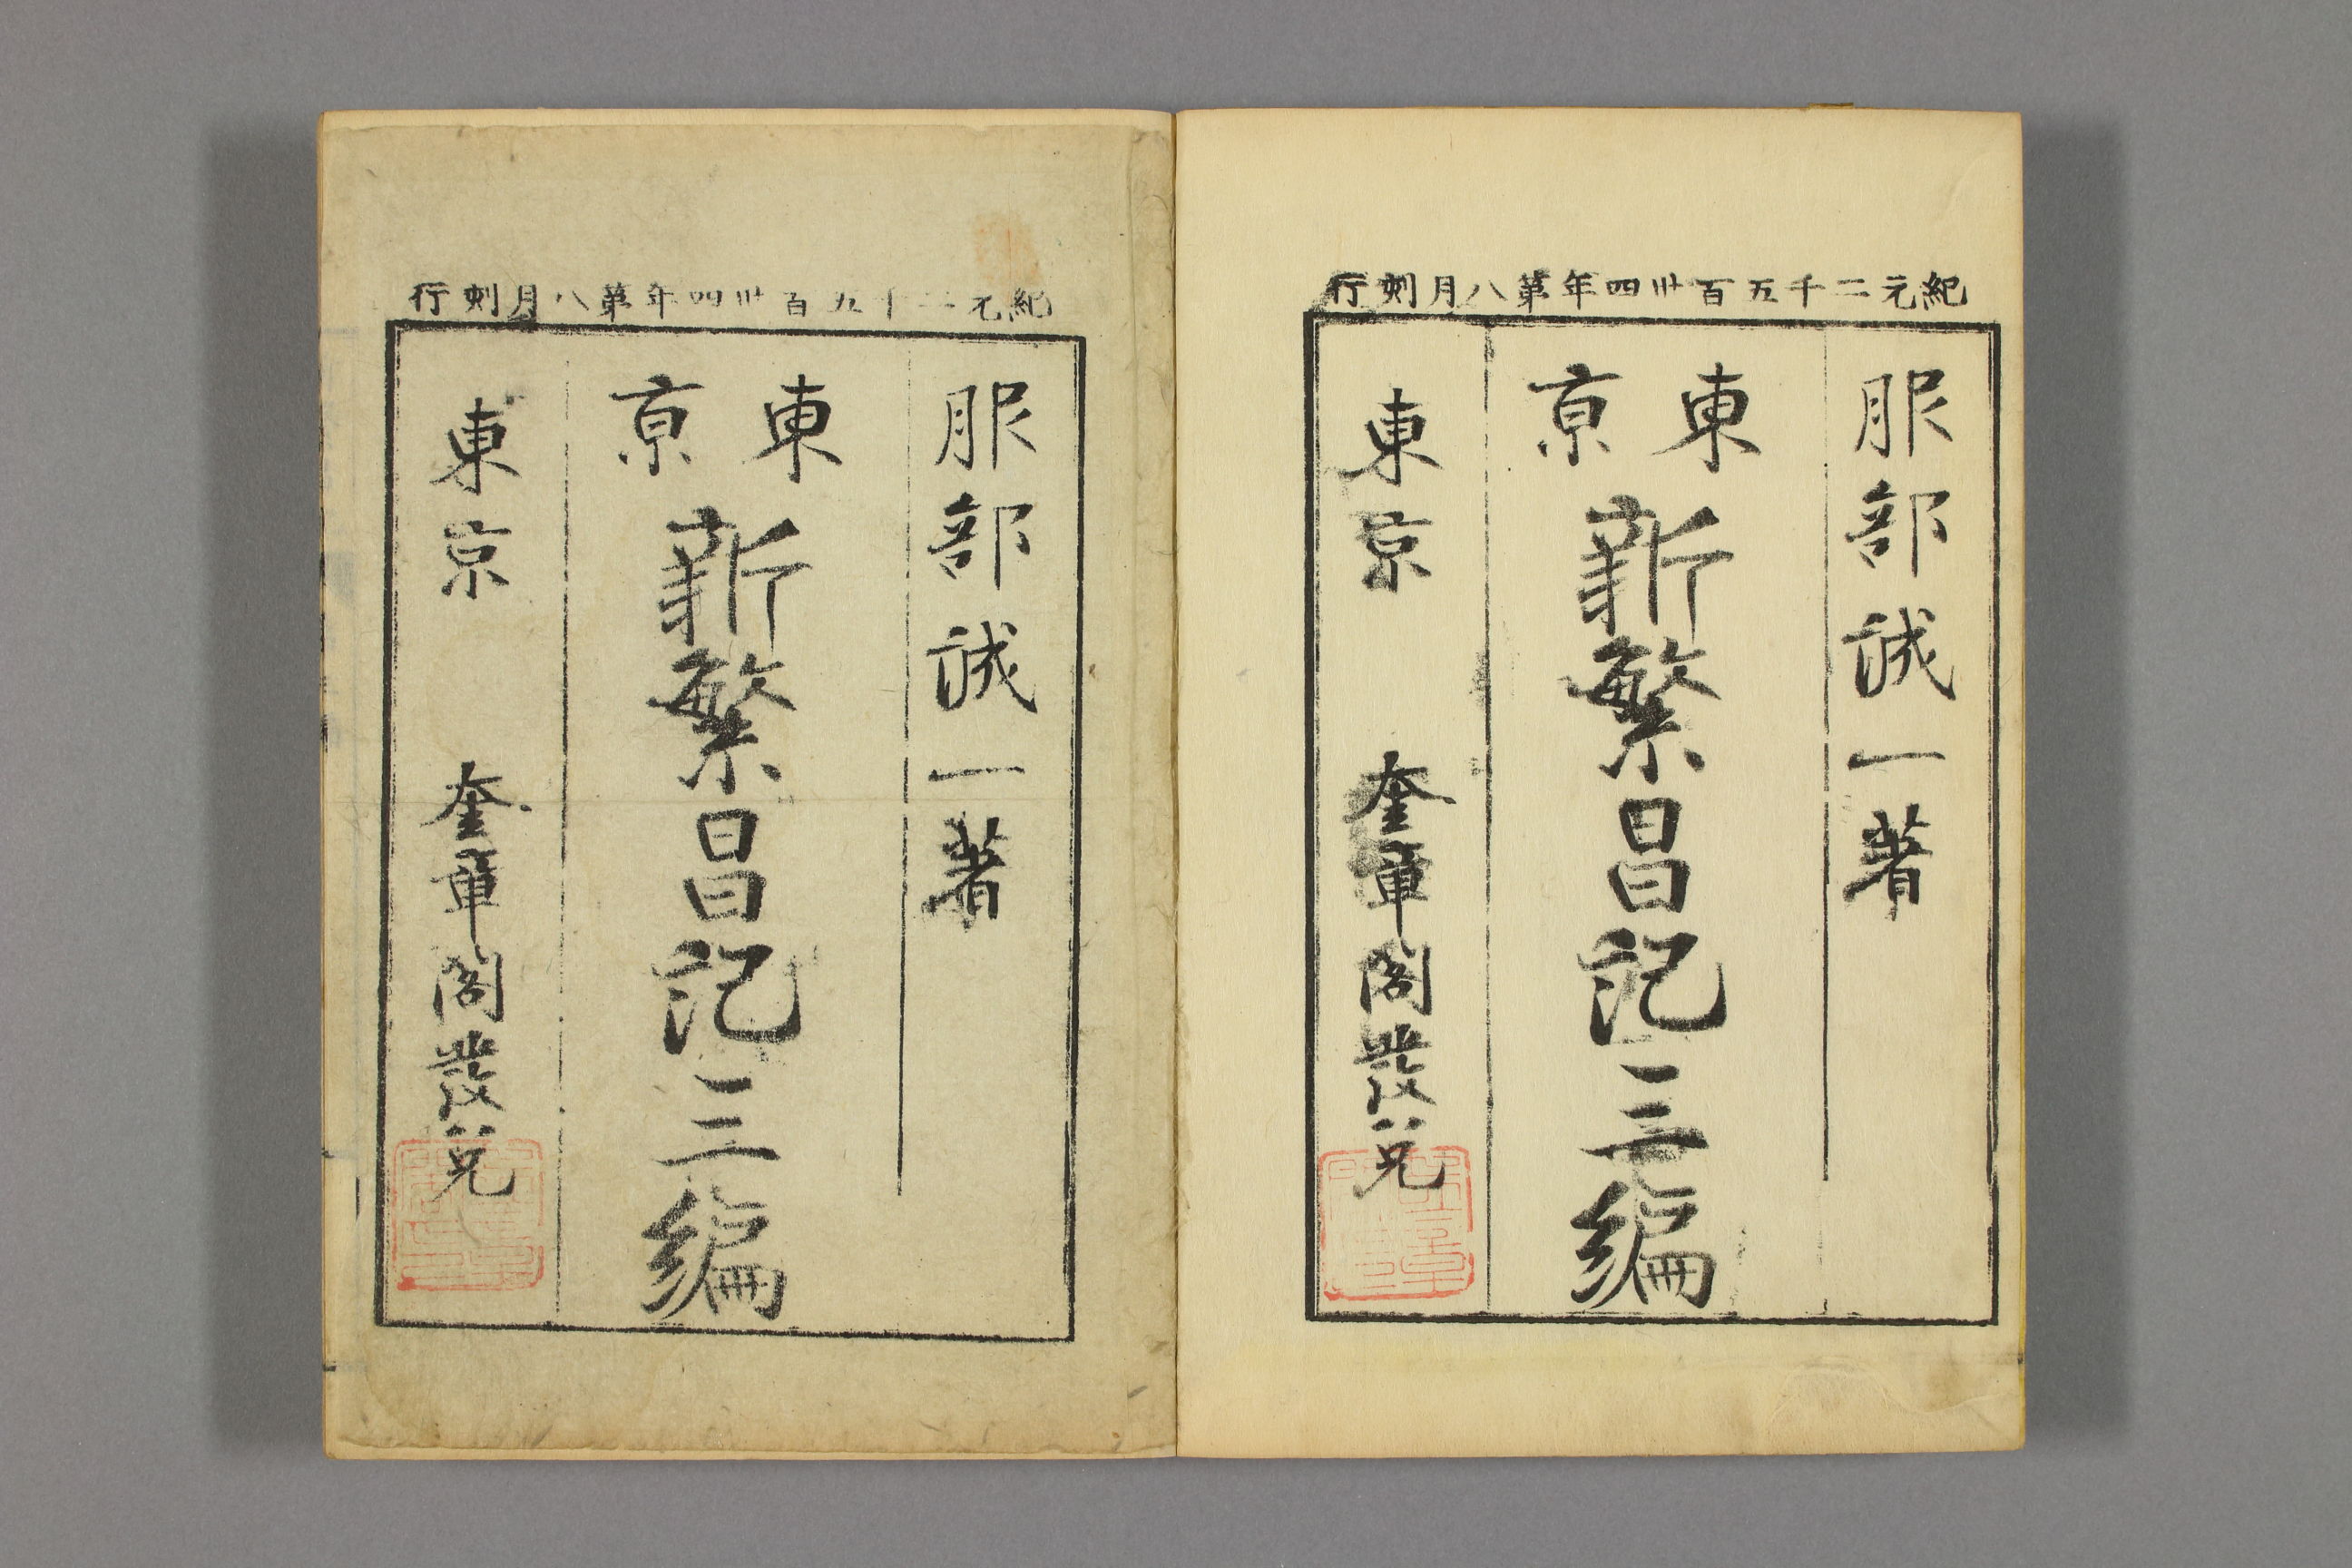 紀元二千五百卅四年第八月刻行
服部誠一著
東京
新繁昌記三編
東京 奎章閣發兌
紀元二千五百卅四年第八月刻行
服部誠一著
東京
新繁昌記三編
東京 奎章閣發兌